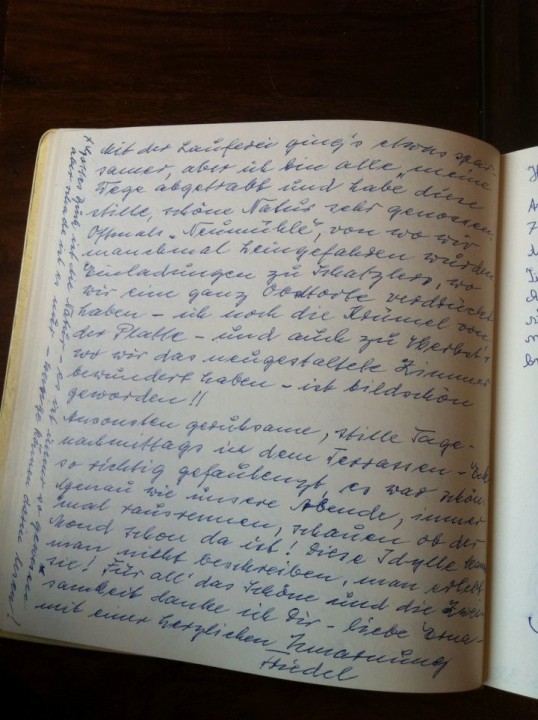 Mit der Lauferei ging's etwas spar-
samer, aber ich bin alle "meine
Tage abgetrabt und habe diese
stille, schöne Natur sehr genossen.
Oftmals "Neumühle", von wo wir
manchmal heimgefahren wurden
Einladungen zu Schatzless, wo
wir eine ganz Obsttorte verdrückt
haben - ich noch die Krümel von
der Platte - und auch zu Herbst's
wo wir das neugestaltete Zimmer
bewundert haben - ist bildschön
geworden!!
Ansonsten geruhsame, stille Tage -
nachmittags in dem Terrassen-Eck
so richtig gefaulenzt, es war schön.
Genau wie unsere Abende, immer
mal rausrennen, schauen ob der
Mond schon da ist! Diese Idylle kann
man nicht beschreiben, man erlebt
sie! Für all' das Schöne und die Zwei-
samkeit danke ich Dir - liebe Erna -
mit einer herzlichen Umarmung
Friedel